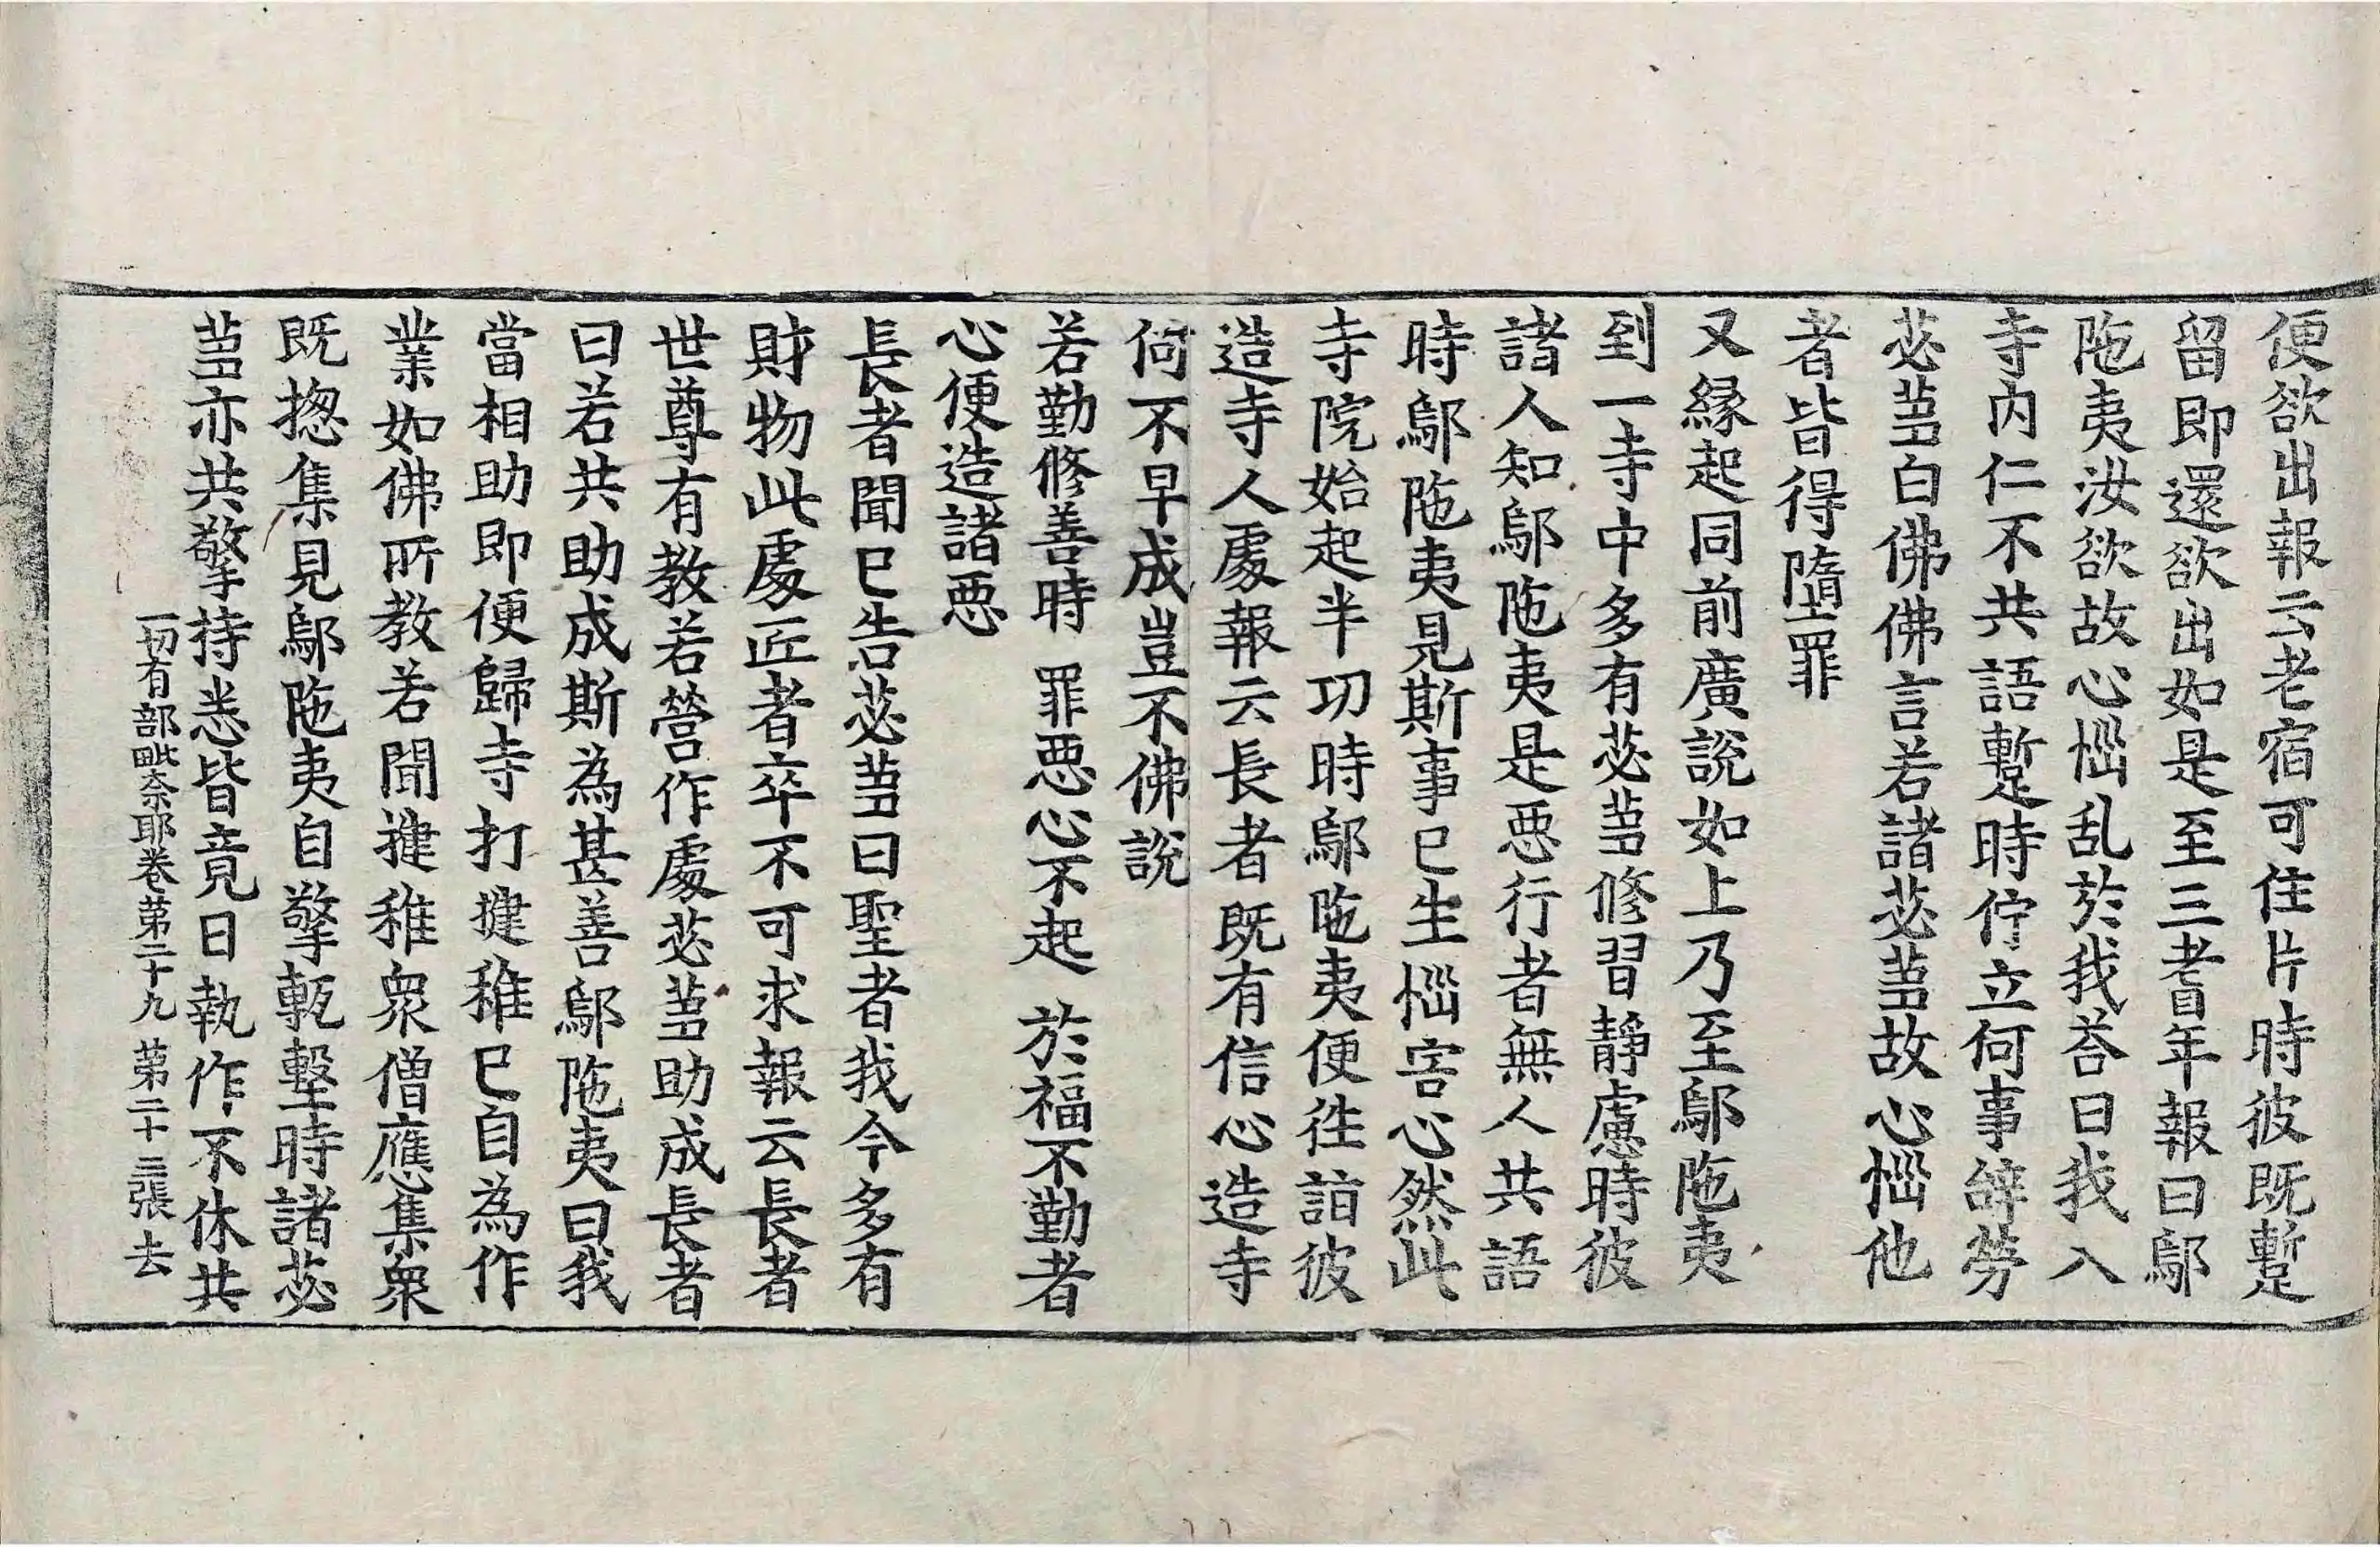 便欲出報云老宿可住片時彼既蹔
留即還欲出如是至三耆年報曰鄔
陁夷汝欲故心惱乱於我荅曰我入
寺内仁不共語蹔時佇立何事辭勞
苾蒭白佛佛言若諸苾蒭故心惱他
者皆得墮罪
又緣起同前廣說如上乃至鄔陁夷
到一寺中多有苾蒭修習靜慮時彼
諸人知鄔陁夷是惡行者無人共語
時鄔陁夷見斯事已生惱害心然此
寺院始起半功時鄔陁夷便往詣彼
造寺人處報云長者既有信心造寺
何不早成豈不佛說
若勤修善時 罪惡心不起 於福不勤者
心便造諸惡
長者聞已告苾蒭曰聖者我今多有
財物此處匠者卒不可求報云長者
世尊有教若營作處苾蒭助成長者
曰若共助成斯為甚善鄔陁夷曰我
當相助即便歸寺打揵稚已自為作
業如佛所教若聞揵稚衆僧應集衆
既揔集見鄔陁夷自擎甎墼時諸苾
蒭亦共擎持悉皆竟日執作不休共
一切有部毗奈耶卷第二十九 第二十三張 去